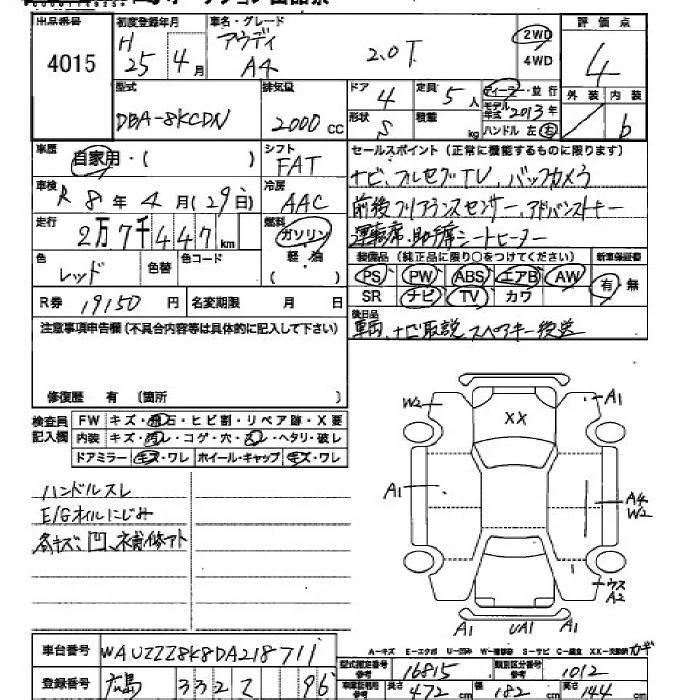 出品番号 初度登録年月 車名・グレード 評価点
4015 H 25年 4月 アウディ A4 2.0T 2WD 4WD 4
型式 排気量 ドア 定員 ディーラー・並行 外装 内装
DBA-8KCDN 2000cc 4 5人 モデル年式 2013年 b
形状 S 積載 kg ハンドル 左 右
車歴 自家用・( ) シフト FAT セールスポイント(正常に機能するものに限ります)
車検 R 8年 4月(29日) 冷房 AAC ナビ、フルセグTV、バックカメラ
前後クリアランスセンサー、アドバンストキー
走行 2万7千447km 燃料 ガソリン 運転席、助手席シートヒーター
色 レッド 色替 色コード 軽・油 ( ) 装備品(純正品に限り○をつけてください) 新車保証書
PS PW ABS エアB AW 有・無
R券 19150円 名変期限 月 日 SR ナビ TV カワ
注意事項申告欄(不具合内容等は具体的に記入して下さい) 後日品
車両、ナビ取説、スペアキー後送
修復歴 有 〔箇所 〕
検査員記入欄 FW キズ・飛石・ヒビ割・リペア跡・X要
内装 キズ・汚レ・コゲ・穴・スレ・ヘタリ・破レ
ドアミラー キズ・ワレ ホイール・キャップ キズ・ワレ
W2 A1
XX
ハンドルスレ
A1 A4 W2
E/Gオイルにじみ
各キズ、凹、補修アト
ウス A2
A1 UA1 A1
車台番号 WAUZZZ8K8DA218711
A-キズ E-エクボ U-凹み W-補修跡 S-サビ C-腐食 XX-交換済
登録番号 広島 332 96
型式指定番号参考 16815 類別区分番号参考 1012
車庫証明用参考 長さ 472cm 幅 182cm 高さ 144cm